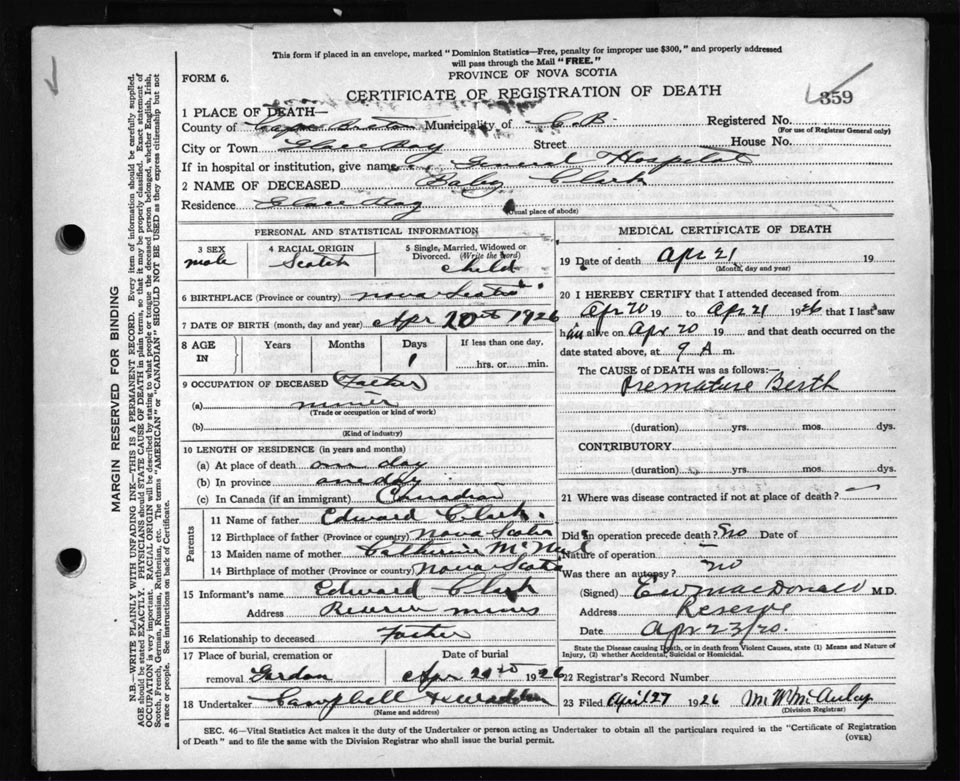 This form if placed in an envelope, marked "Dominion Statistics—Free, penalty for improper use $300," and properly addressed
will pass through the Mail "FREE."
FORM 6.
PROVINCE OF NOVA SCOTIA
CERTIFICATE OF REGISTRATION OF DEATH
359
1 PLACE OF DEATH—
County of Cape Breton Municipality of C.B. Registered No.
(For use of Registrar General only)
City or Town Glace Bay Street House No.
If in hospital or institution, give name General Hospital
2 NAME OF DECEASED Baby Clark
Residence Glace Bay
(Usual place of abode)
PERSONAL AND STATISTICAL INFORMATION
3 SEX
male
4 RACIAL ORIGIN
Scotch
5 Single, Married, Widowed or
Divorced. (Write the word)
Child
6 BIRTHPLACE (Province or country) Nova Scotia
7 DATE OF BIRTH (month, day and year) Apr 20th 1926
8 AGE IN
Years Months Days
1
If less than one day,
hrs. or min.
9 OCCUPATION OF DECEASED (Father)
(a) miner
(Trade or occupation or kind of work)
(b)
(Kind of industry)
10 LENGTH OF RESIDENCE (in years and months)
(a) At place of death one day
(b) In province one day
(c) In Canada (if an immigrant) Canadian
Parents
11 Name of father Edward Clark
12 Birthplace of father (Province or country) Nova Scotia
13 Maiden name of mother Catherine McNeil
14 Birthplace of mother (Province or country) Nova Scotia
15 Informant's name Edward Clark
Address Reserve mines
16 Relationship to deceased Father
17 Place of burial, cremation or
removal
Date of burial
Apr 1926
18 Undertaker Campbell
(Name and address)
MEDICAL CERTIFICATE OF DEATH
19 Date of death Apr 21 19
(Month, day and year)
20 I HEREBY CERTIFY that I attended deceased from
Apr 20 19 to Apr 21 1926 that I last saw
him alive on Apr 20 19 and that death occurred on the
date stated above, at 9 A m.
The CAUSE of DEATH was as follows:—
Premature Berth
(duration) yrs. mos. dys.
CONTRIBUTORY
(duration) yrs. mos. dys.
21 Where was disease contracted if not at place of death? —
Did an operation precede death? No Date of
Nature of operation —
Was there an autopsy? no
(Signed) E W MacDonald M.D.
Address Reserve
Date Apr 23/20.
State the Disease causing Death, or in death from Violent Causes, state (1) Means and Nature of
Injury, (2) whether Accidental, Suicidal or Homicidal.
22 Registrar's Record Number
23 Filed April 27 1926 M. W. McAulay
(Division Registrar)
SEC. 46—Vital Statistics Act makes it the duty of the Undertaker or person acting as Undertaker to obtain all the particulars required in the "Certificate of Registration
of Death" and to file the same with the Division Registrar who shall issue the burial permit.
(OVER)
MARGIN RESERVED FOR BINDING
N.B.—WRITE PLAINLY WITH UNFADING INK—THIS IS A PERMANENT RECORD. Every item of information should be carefully supplied.
AGE should be stated EXACTLY. PHYSICIANS should STATE CAUSE OF DEATH in plain terms, so that it may be properly classified. Exact statement of
OCCUPATION is very important. RACIAL ORIGIN will be described by stating to what people or tongue the deceased person belonged, whether English, Irish,
Scotch, French, German, Russian, Ruthenian, etc. The terms "AMERICAN" or "CANADIAN" SHOULD NOT BE USED as they express citizenship but not
a race or people. See instructions on back of Certificate.